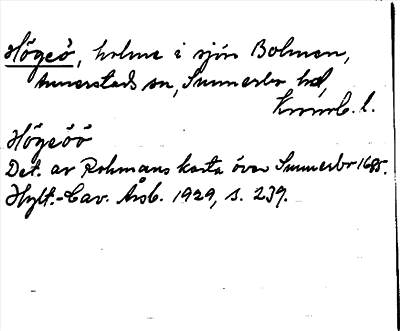 Högeö, holme i sjön Bolmen,
Annerstads sn, Sunnerbo hd,
Kronob. l.
Högeöö
Det. av Rohmans karta över Sunnerbo 1685.
Hylt.-Cav. Årsb. 1929, s. 239.